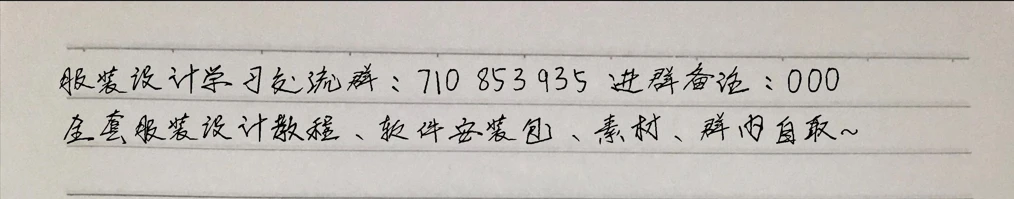 服装设计学习交流群：710 853 935 进群备注：000
全套服装设计教程、软件安装包、素材、群内自取~